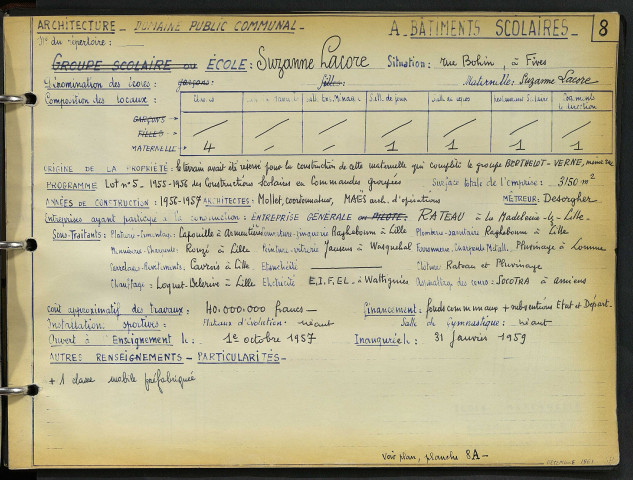 ARCHITECTURE - DOMAINE PUBLIC COMMUNAL - A. BÂTIMENTS SCOLAIRES - 8
N° du répertoire :
GROUPE SCOLAIRE ou ÉCOLE : Suzanne Lacore Situation : rue Bohin, à Fives
Dénomination des écoles : garçons : filles : Maternelle : Suzanne Lacore
Composition des locaux : Classes Salle de jeux Logements
GARÇONS →
FILLES →
MATERNELLE → 4 - - 1 1 - 1
ORIGINE DE LA PROPRIÉTÉ : le terrain avait été réservé pour la construction de cette maternelle qui complète le groupe BERTHELOT-VERNE, même rue
PROGRAMME Lot n° 5 - 1955-1956 des Constructions Scolaires en Commandes groupées Surface totale de l'emprise : 3150 m²
ANNÉES DE CONSTRUCTION : 1956-1957 ARCHITECTES : Mollet, coordonnateur, MAËS arch. d'opérations MÉTREUR : Desorgher
Entreprises ayant participé à la construction : ENTREPRISE GENERALE ou PILOTE : RATEAU à La Madeleine-lz-Lille -
Sous-Traitants : Lafouille à Armentières Ragheboom à Lille Plomberie-sanitaire Ragheboom à Lille
Menuiserie : Rouzé à Lille Peinture-vitrerie Janssens à Wasquehal Ferronnerie, Charpente Métall. Pluvinage à Lomme
Carrelages-Revêtements, Cavrois à Lille Etanchéité Clôtures Rateau et Pluvinage
Chauffage : Loquet-Delerive à Lille Electricité E.I.F.EL. à Wattignies SOCOTRA à Amiens
Coût approximatif des travaux : 40.000.000 francs - Financement : fonds communaux + subventions Etat et Départ.
Installations sportives : Plateaux d'évolution - néant Salle de gymnastique : néant
Ouvert à l'Enseignement le : 1er octobre 1957 Inaugurée le : 31 janvier 1959
AUTRES RENSEIGNEMENTS - PARTICULARITÉS -
+ 1 classe mobile préfabriquée
Voir plan, planche 8A -